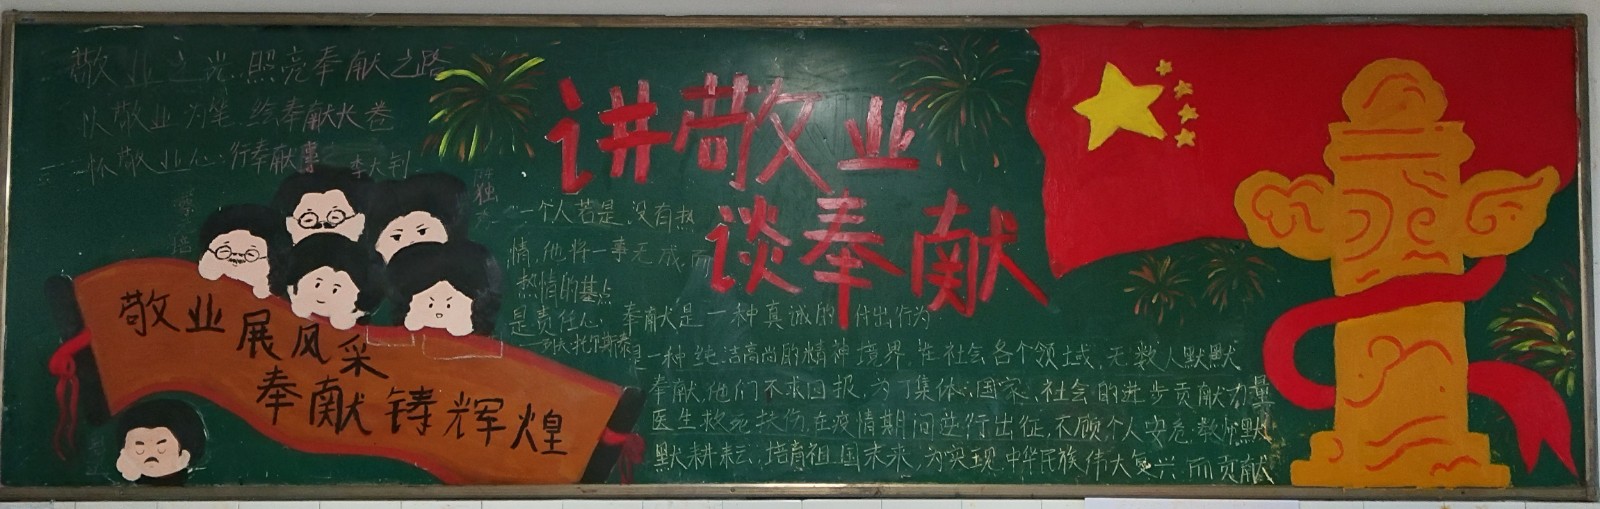 敬业之光,照亮奉献之路
以敬业为笔,绘奉献长卷
怀敬业心,行奉献事
李大钊
讲敬业
谈奉献
一个人若是没有热
情,他将一事无成,而
热情的基点
是责任心
列夫托尔斯泰
奉献是一种真诚的付出行为
是一种纯洁高尚的精神境界,在社会各个领域,无数人默默
奉献,他们不求回报,为了集体、国家、社会的进步贡献力量
医生救死扶伤,在疫情期间逆行出征,不顾个人安危,教师默
默耕耘,培育祖国未来,为实现中华民族伟大复兴,而贡献
敬业展风采
奉献铸辉煌